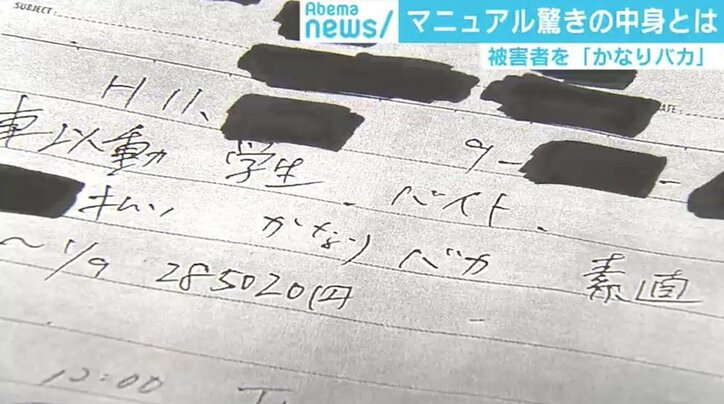 SUBJECT:
Abema
news/
マニュアル驚きの中身とは
被害者を「かなりバカ」
DATE
H11、
9-
車以動 学生 バイト、
かなりバカ 素直
~1/9 285020円
12:00